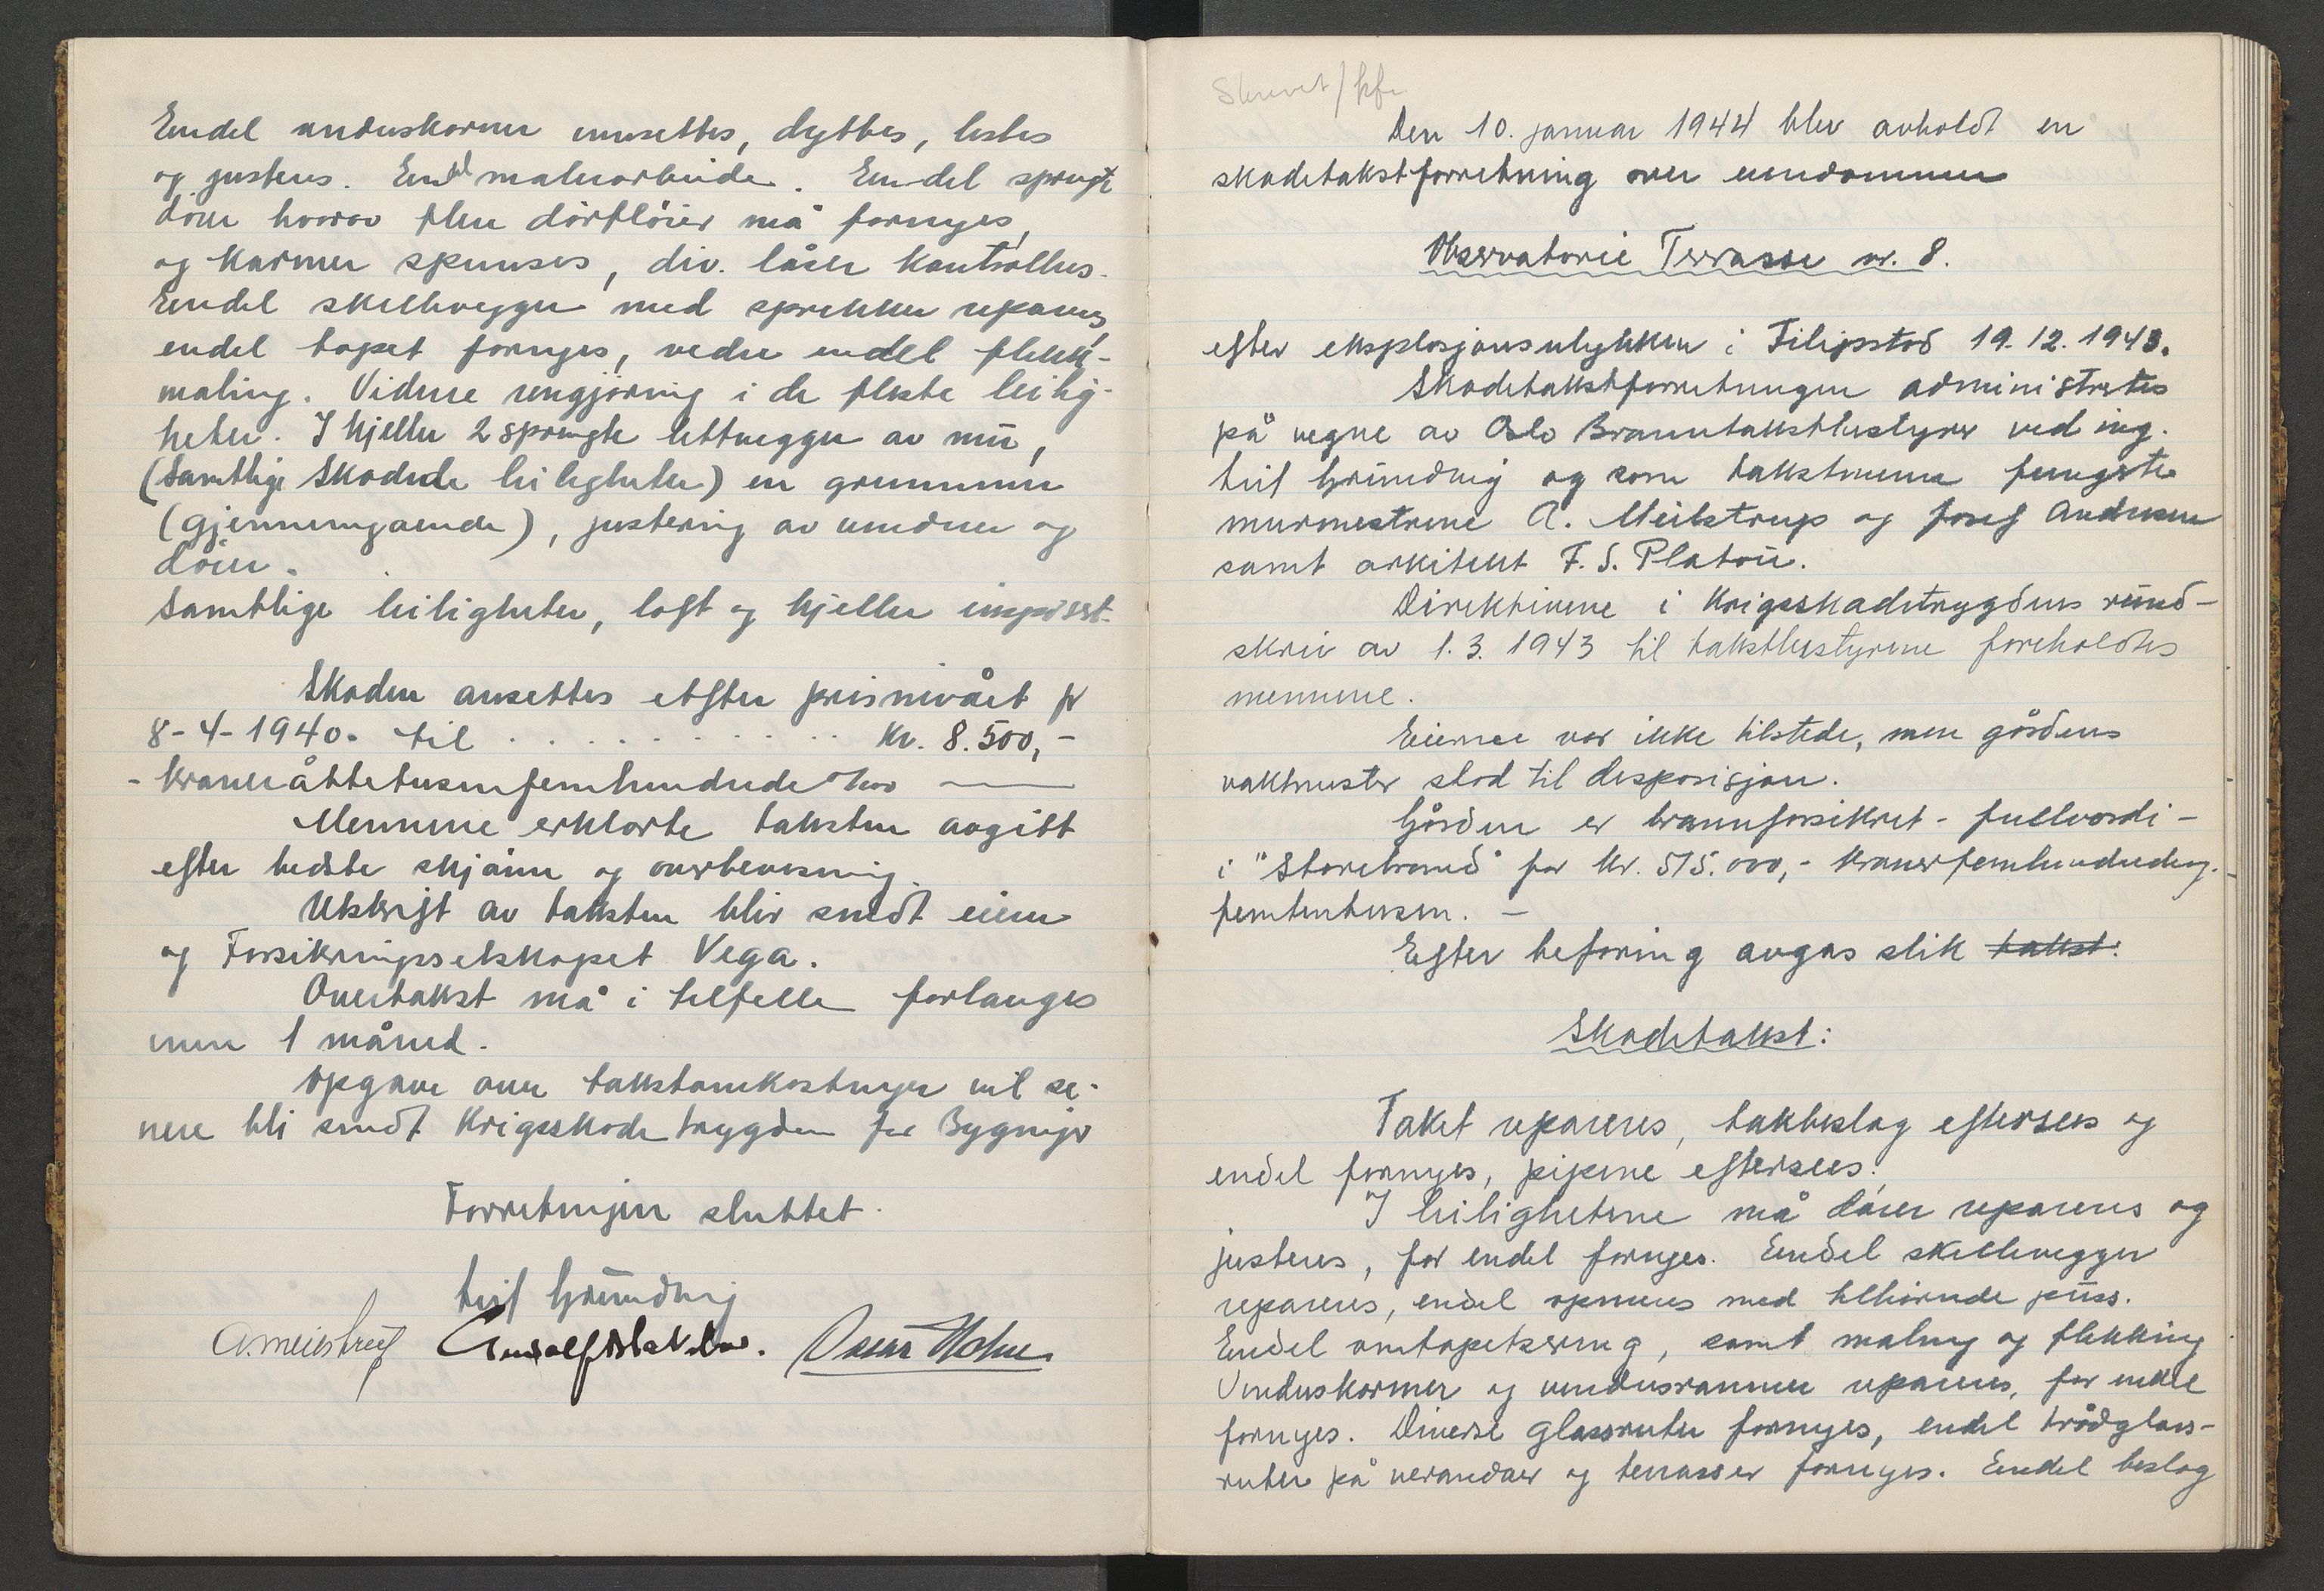 Endel vinduskarmer innsettes, dyttes, listes
og justeres. Endel malerarbeide. Endel sprengte
dører hvorav flere dørfløier må fornyes,
og karmer spunses, div. låser kontrolleres.
Endel skillevegger med sprekker repareres,
endel tapet fornyes, videre endel flekk-
maling. Videre rengjøring i de fleste leilig-
heter. I kjeller 2 sprengte lettvegger av mur,
(samtlige skadede leiligheter) en
(gjennemgaaende), justering av vinduer og
dører.
Samtlige leiligheter, loft og kjeller inspisert.
Skaden ansettes efter prisnivået pr
8-4-1940. til . . . . . . . . . . kr. 8.500,-
- kroneråttetusenfemhundrede 0/100 —
Mennene erklærte taksten avgitt
efter bedste skjønn og overbevisning.
Utskrift av taksten blir sendt eieren
og Forsikringsselskapet Vega.
Overtakst må i tilfelle forlanges
innen 1 måned.
Opgave over takstomkostninger vil se-
nere bli sendt Krigsskadetrygden for Bygninger
Forretningen sluttet.
Leif Gründvig
A. Meilstrup
Oscar Holm
Skrevet/
Den 10. januar 1944 blev avholdt en
skadetakstforretning over eiendommen
Observatorie Terrasse nr. 8.
efter eksplosjonsulykken i Filipstad 19.12.1943.
Skadetakstforretningen administrertes
på vegne av Oslo Branntakstbestyrer ved ing.
Leif Gründvig og som takstmenn fungerte
murmestrene A. Meilstrup og Josef Andersen
samt arkitekt F. S. Platou.
Direktivene i Krigsskadetrygdens rund-
skriv av 1.3. 1943 til takstbestyrerne foreholdtes
mennene.
Eieren var ikke tilstede, men gårdens
vaktmester stod til disposisjon.
Gården er brannforsikret - fullverdi -
i "Storebrand" for kr. 515.000,- kronerfemhundredeog-
femtentusen. —
Efter befaring avgas slik takst:
Skadetakst:
Taket repareres, takbeslag eftersees og
endel fornyes, pipene eftersees.
I leilighetene må dører repareres og
justeres, for endel fornyes. Endel skillevegger
repareres, endel opmures med tilhørende puss.
Endel omtapetsering, samt maling og flekking
Vinduskarmer og vindusrammer repareres, for endel
fornyes. Diverse glassruter fornyes, endel trådglass-
ruter på verandaer og terrasser fornyes. Endel beslag